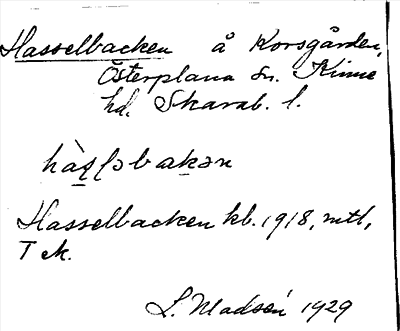 Hasselbacken å Korsgården,
Österplana sn. Kinne
hd. Skarab. l.
hàs̯l̥əbak̯ən
Hasselbacken kb. 1918, mtl,
T ek.
L. Madsén 1929